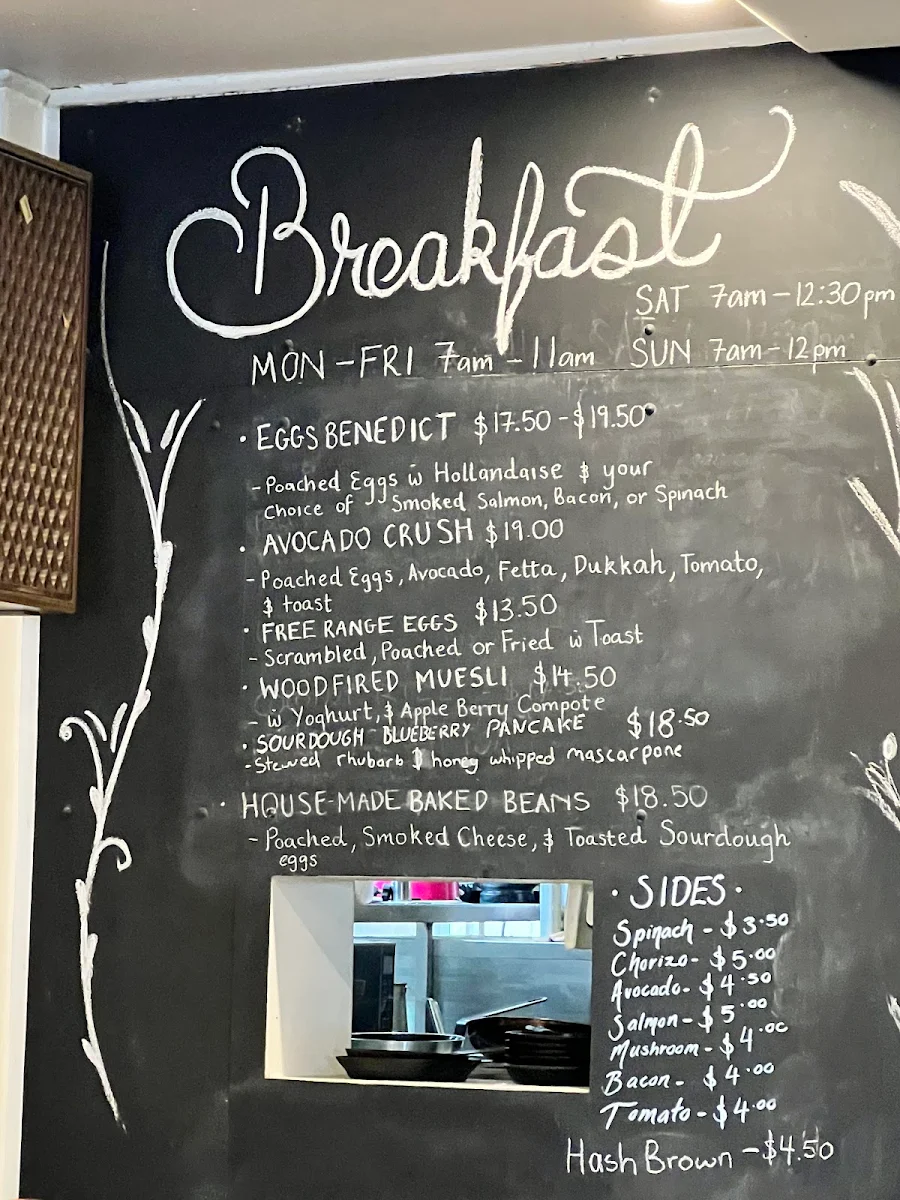 Breakfast
SAT 7am - 12:30pm
MON - FRI 7am - 11am SUN 7am - 12pm
· EGGS BENEDICT $17.50 - $19.50
- Poached Eggs w Hollandaise & your
choice of Smoked Salmon, Bacon, or Spinach
· AVOCADO CRUSH $19.00
- Poached Eggs, Avocado, Fetta, Dukkah, Tomato,
& toast
· FREE RANGE EGGS $13.50
- Scrambled, Poached or Fried w Toast
· WOODFIRED MUESLI $14.50
- w Yoghurt, & Apple Berry Compote
· SOURDOUGH BLUEBERRY PANCAKE $18.50
- Stewed rhubarb & honey whipped mascarpone
· HOUSE-MADE BAKED BEANS $18.50
- Poached, Smoked Cheese, & Toasted Sourdough
eggs
· SIDES ·
Spinach - $3.50
Chorizo - $5.00
Avocado - $4.50
Salmon - $5.00
Mushroom - $4.00
Bacon - $4.00
Tomato - $4.00
Hash Brown - $4.50